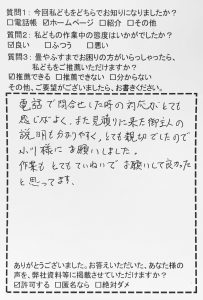 質問1：今回私どもをどちらでお知りになりましたか？
□電話帳 ☑ホームページ □紹介 □その他
質問2：私どもの作業中の態度はいかがでしたか？
☑良い □ふつう □悪い
質問3：畳やふすまでお困りの方がいらっしゃったら、
私どもをご推薦いただけますか？
☑推薦できる □推薦できない □分からない
その他、ご要望がございましたら、お書きください。
電話で問合せした時の対応がとても
感じなよく、また見積りに来た御主人の
説明も分かりやすく、とても親切でしたので
小川様にお願いしました。
作業もとてもていねいでお願いして良かった
と思ってます。
ありがとうございました。お答えいただいた、あなた様の
声を、弊社資料等に掲載させていただけますか？
☑許可する □匿名なら □絶対ダメ